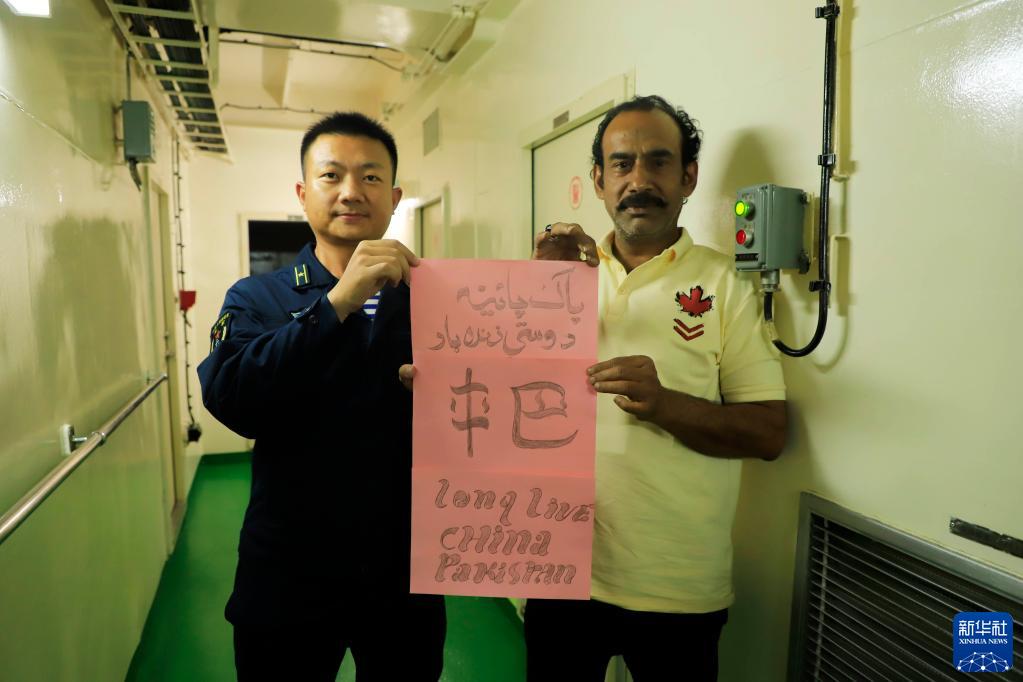 پاک چائینہ
دوستی زندہ باد
中巴
Long Live
CHina
Pakistan
新华社
XINHUA NEWS